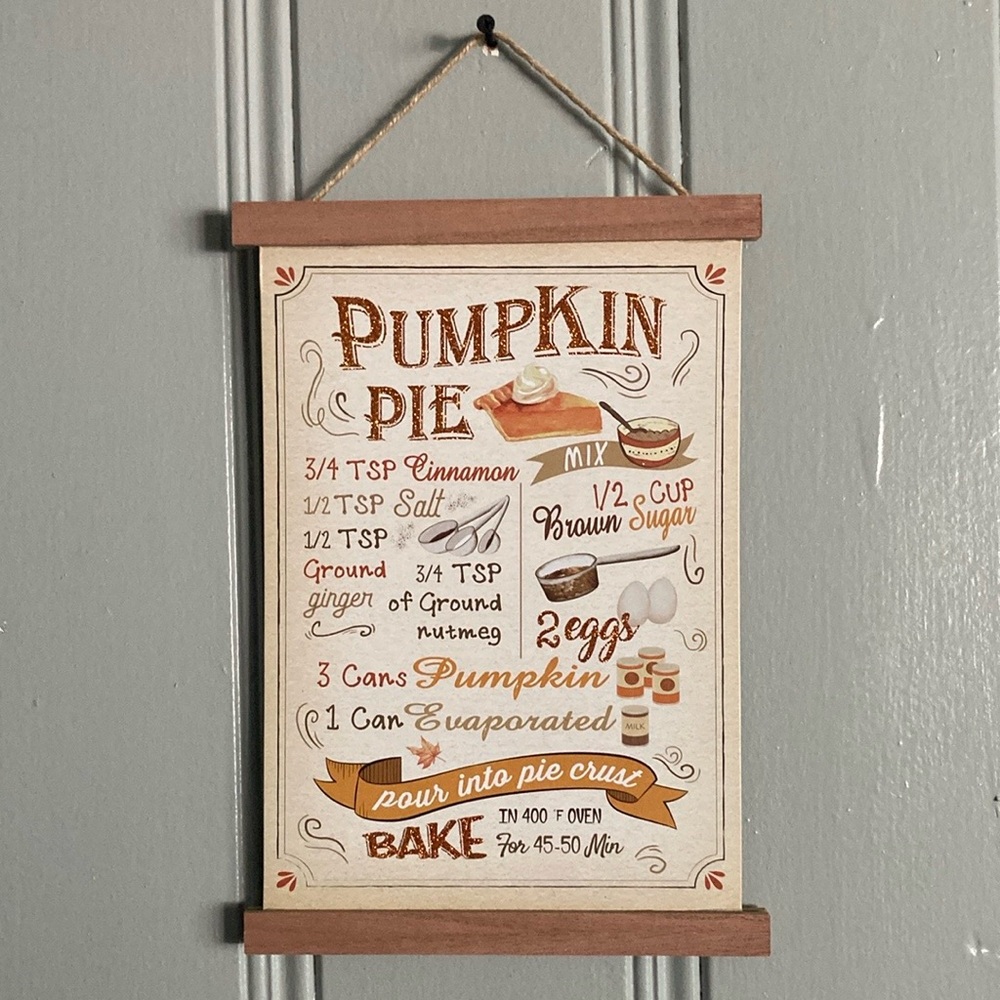 PUMPKIN
PIE
MIX
3/4 TSP Cinnamon
1/2 TSP Salt
1/2 TSP
Ground
ginger
3/4 TSP
of Ground
nutmeg
1/2 CUP
Brown Sugar
2 eggs
3 Cans Pumpkin
1 Can Evaporated
MILK
pour into pie crust
BAKE
IN 400 °F OVEN
For 45-50 Min